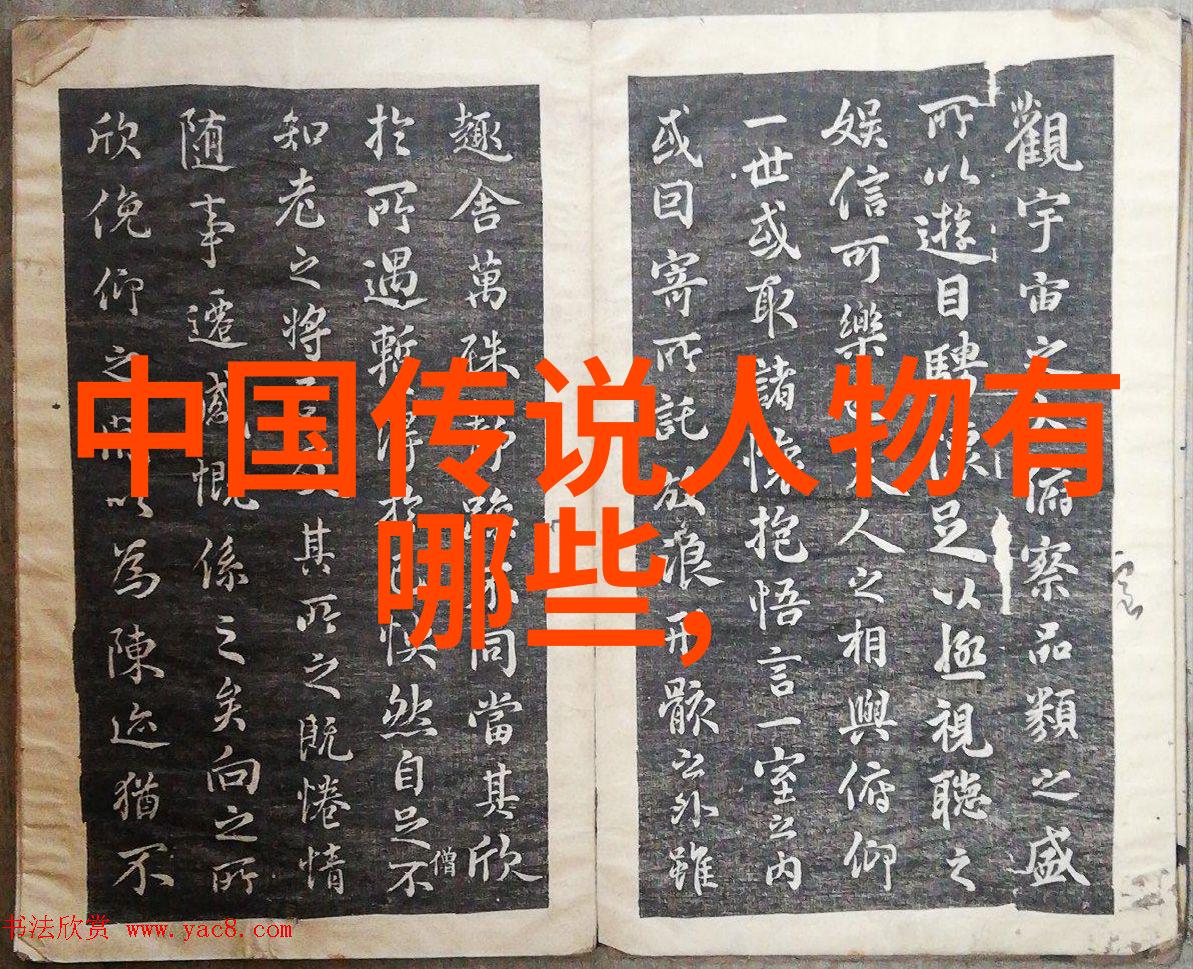 中国传说人物有
哪些,
觀宇宙之大俯察品類之盛
所以遊目騁懷足以極視聽之
娛信可樂也夫人之相與俯仰
一世或取諸懷抱悟言一室之內
或因寄所託放浪形骸之外雖
趣舍萬殊靜躁不同當其欣
於所遇暫得於己怏然自足不
僧
知老之將至及其所之既惓情
隨事遷感慨係之矣向之所
欣俛仰之間以為陳迹猶不
书法欣赏 www.yac8.com